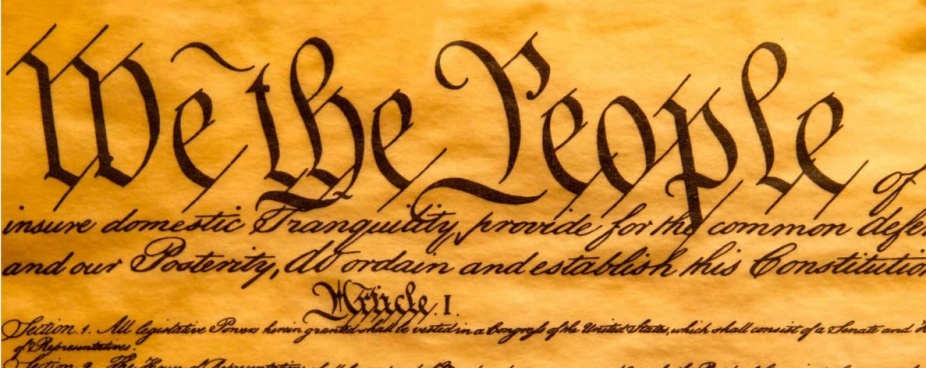 We the People of
insure domestic Tranquility, provide for the common defen
and our Posterity, do ordain and establish this Constitution
Article. I.
Section. 1. All legislative Powers herein granted shall be vested in a Congress of the United States, which shall consist of a Senate and H
of Representatives.
Section. 2. The House of Representatives shall be